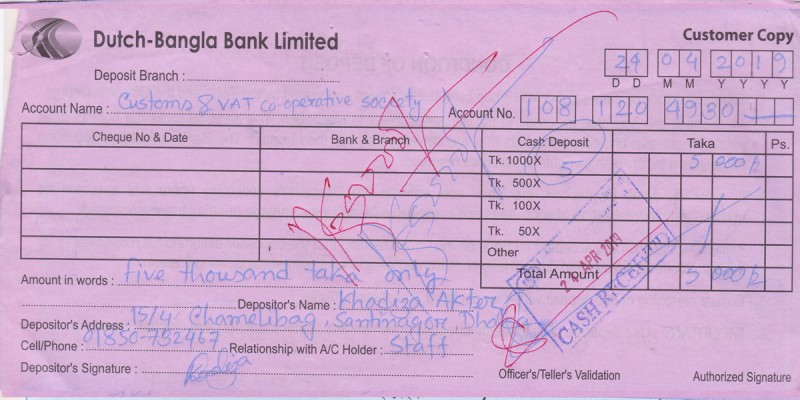 Dutch-Bangla Bank Limited
Customer Copy
Deposit Branch :
24 04 2019
D D M M Y Y Y Y
Account Name : Customs & VAT co-operative society Account No. 108 120 4930
Cheque No & Date Bank & Branch Cash Deposit Taka Ps.
Tk. 1000X 5 5 000/=
Tk. 500X
Tk. 100X
Tk. 50X
Other
Total Amount 5 000/=
24 APR 2019
CASH RECEIVED
Amount in words : five thousand taka only
Depositor's Name : Khadiza Akter
Depositor's Address : 15/4 Chamelibag, Santinagor, Dhaka
Cell/Phone : 01850-752467 Relationship with A/C Holder : Staff
Depositor's Signature :
Officer's/Teller's Validation Authorized Signature